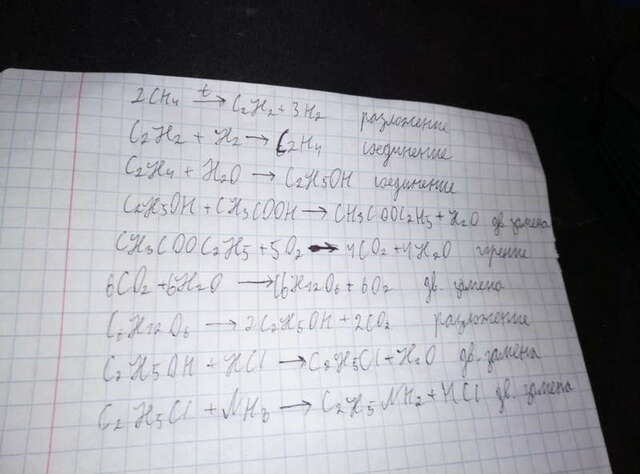 2CH4 t→ C2H2 + 3H2 разложение
C2H2 + H2 → C2H4 соединение
C2H4 + H2O → C2H5OH соединение
C2H5OH + CH3COOH → CH3COOC2H5 + H2O дв. замена
CH3COOC2H5 + 5O2 → 4CO2 + 4H2O горение
6CO2 + 6H2O → C6H12O6 + 6O2 дв. замена
C6H12O6 → 2C2H5OH + 2CO2 разложение
C2H5OH + HCl → C2H5Cl + H2O дв. замена
C2H5Cl + NH3 → C2H5NH2 + HCl дв. замена